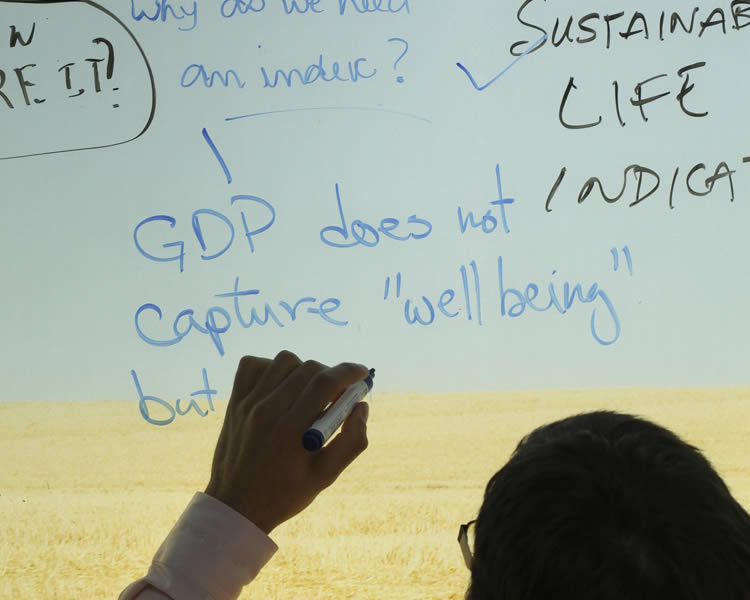 Why do we need
an index?
GDP does not
capture "well being"
but
N
RE IT?
SUSTAINAB
LIFE
INDICAT